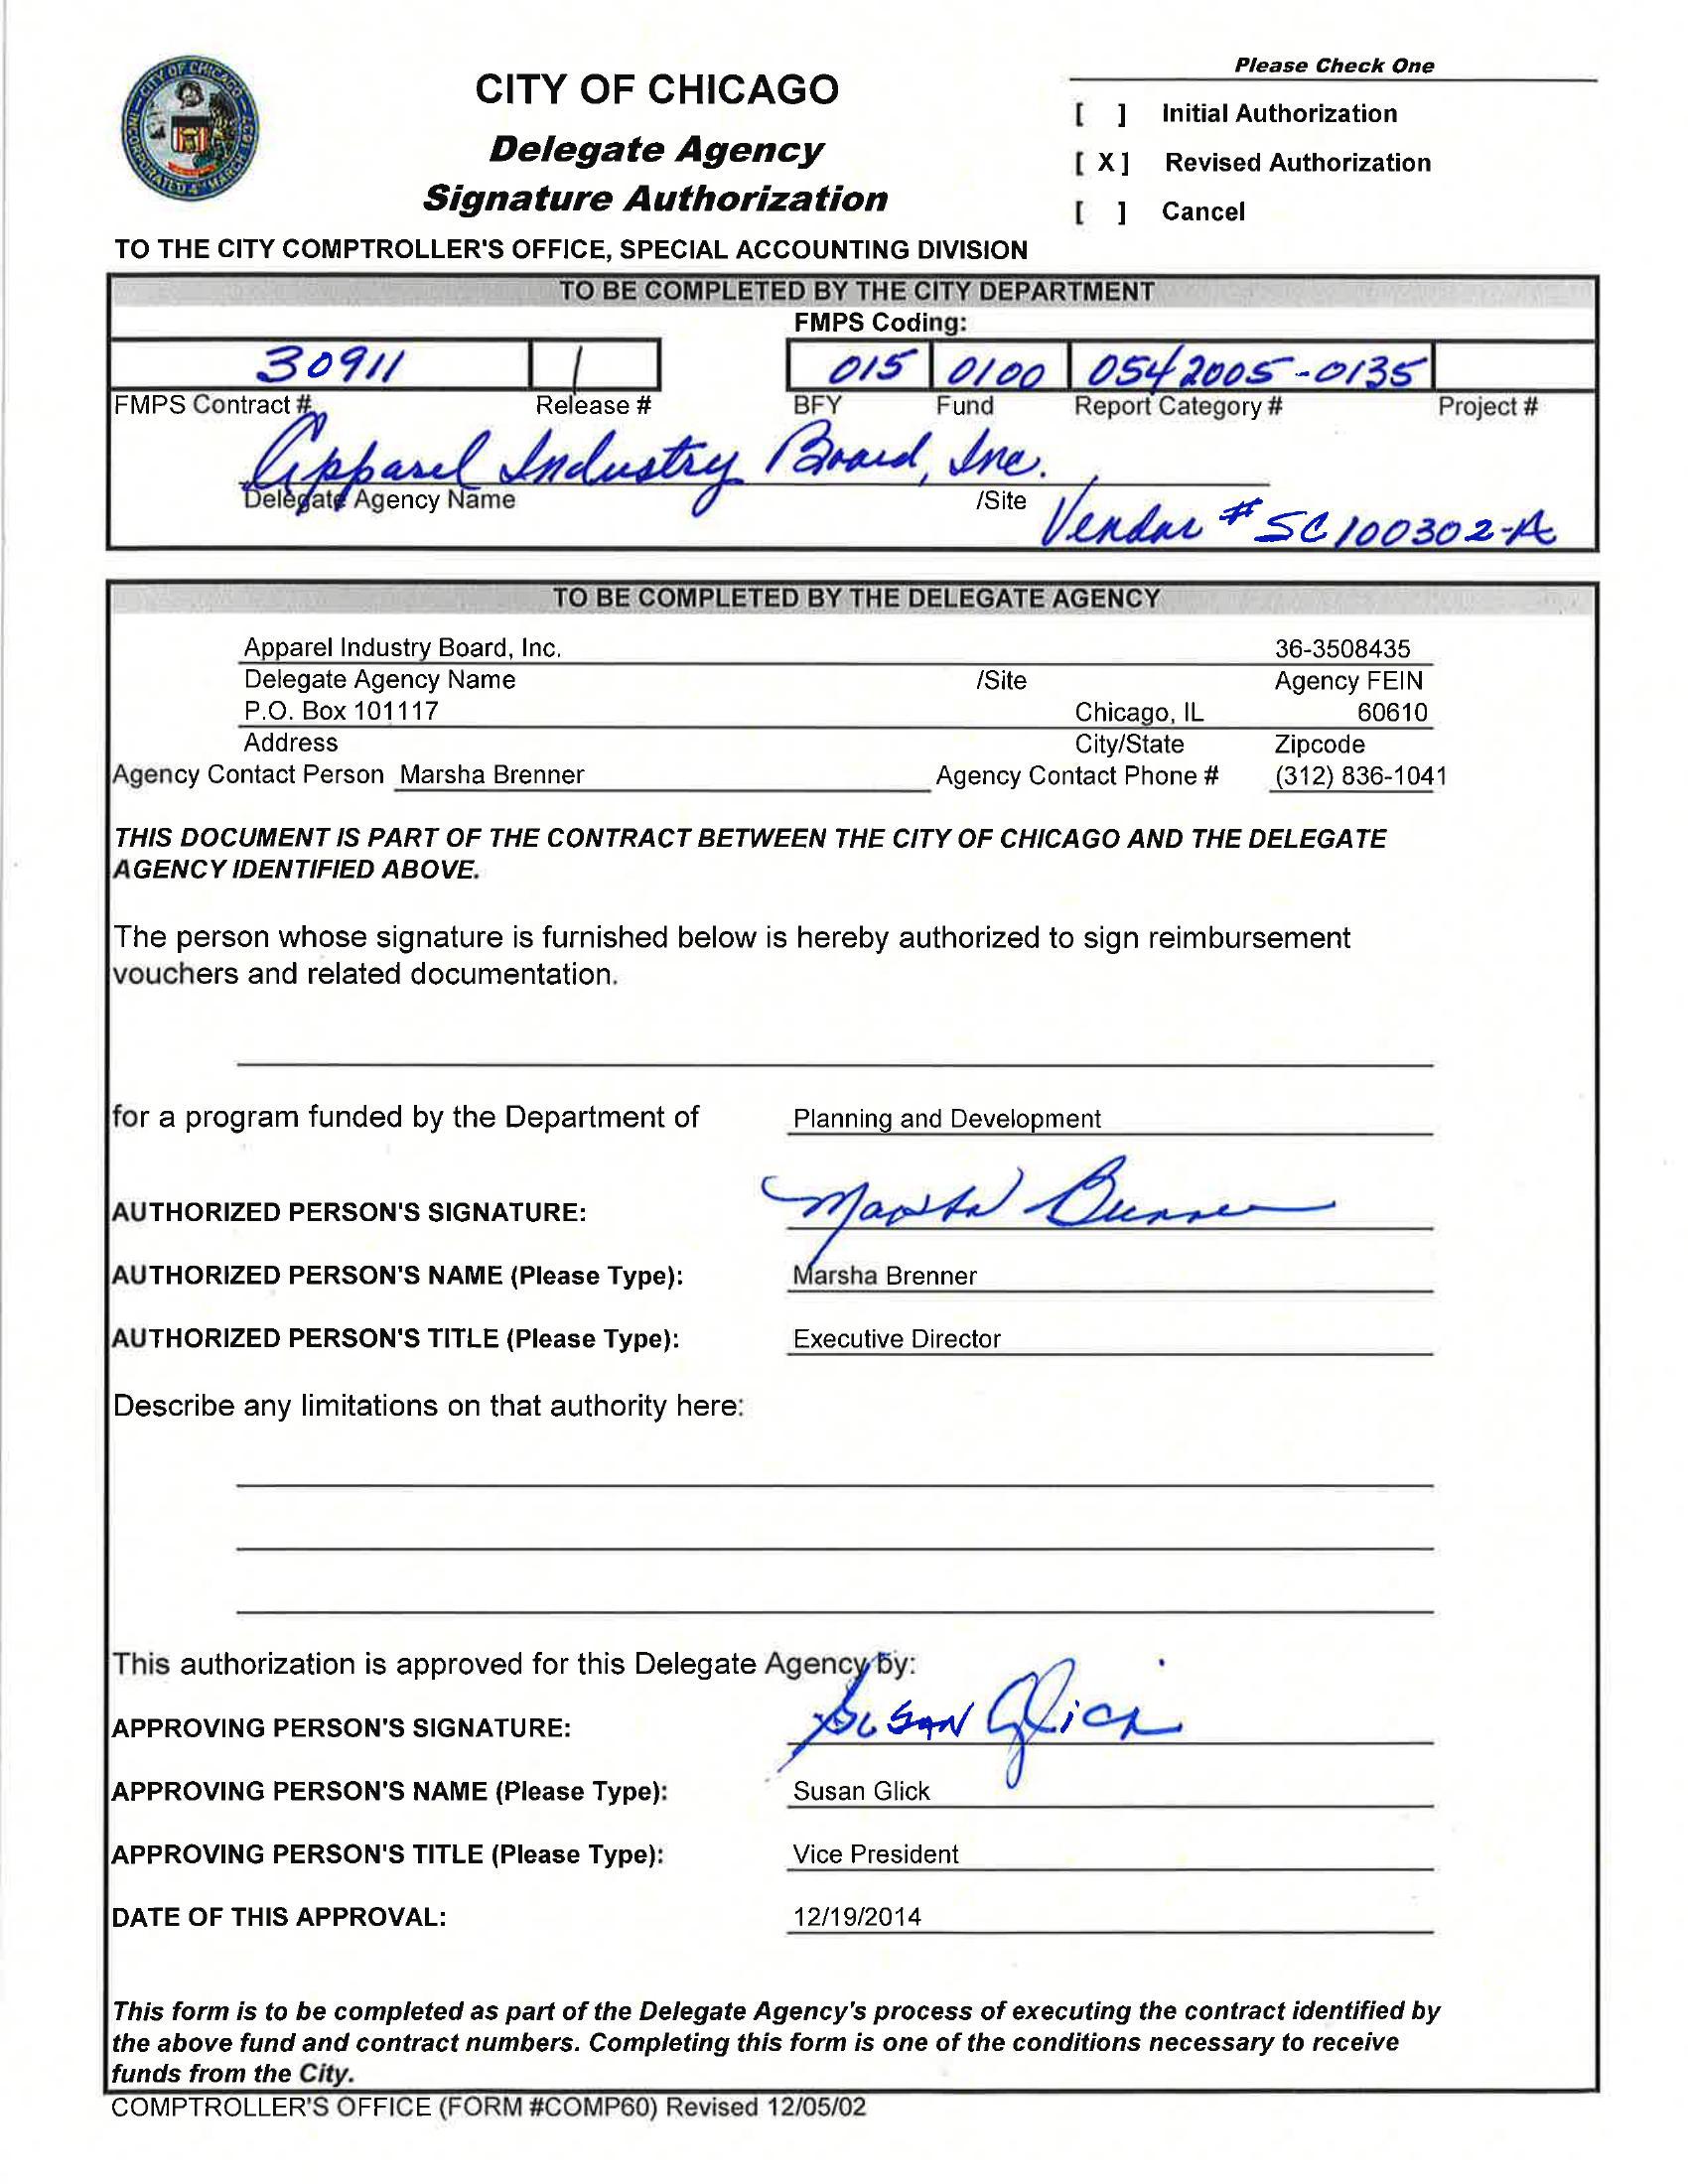 Please Check One
CITY OF CHICAGO
[ ] Initial Authorization
Delegate Agency
[ X ] Revised Authorization
Signature Authorization
[ ] Cancel
CITY OF CHICAGO
INCORPORATED 4TH MARCH 1837
TO THE CITY COMPTROLLER'S OFFICE, SPECIAL ACCOUNTING DIVISION
TO BE COMPLETED BY THE CITY DEPARTMENT
FMPS Coding:
30911 1 015 0100 0542005-0135
FMPS Contract # Release # BFY Fund Report Category # Project #
Apparel Industry Board, Inc.
Delegate Agency Name /Site
Vendor # SC100302-A
TO BE COMPLETED BY THE DELEGATE AGENCY
Apparel Industry Board, Inc. 36-3508435
Delegate Agency Name /Site Agency FEIN
P.O. Box 101117 Chicago, IL 60610
Address City/State Zipcode
Agency Contact Person Marsha Brenner Agency Contact Phone # (312) 836-1041
THIS DOCUMENT IS PART OF THE CONTRACT BETWEEN THE CITY OF CHICAGO AND THE DELEGATE
AGENCY IDENTIFIED ABOVE.
The person whose signature is furnished below is hereby authorized to sign reimbursement
vouchers and related documentation.
for a program funded by the Department of Planning and Development
AUTHORIZED PERSON'S SIGNATURE: Marsha Brenner
AUTHORIZED PERSON'S NAME (Please Type): Marsha Brenner
AUTHORIZED PERSON'S TITLE (Please Type): Executive Director
Describe any limitations on that authority here:
This authorization is approved for this Delegate Agency by:
APPROVING PERSON'S SIGNATURE: Susan Glick
APPROVING PERSON'S NAME (Please Type): Susan Glick
APPROVING PERSON'S TITLE (Please Type): Vice President
DATE OF THIS APPROVAL: 12/19/2014
This form is to be completed as part of the Delegate Agency's process of executing the contract identified by
the above fund and contract numbers. Completing this form is one of the conditions necessary to receive
funds from the City.
COMPTROLLER'S OFFICE (FORM #COMP60) Revised 12/05/02